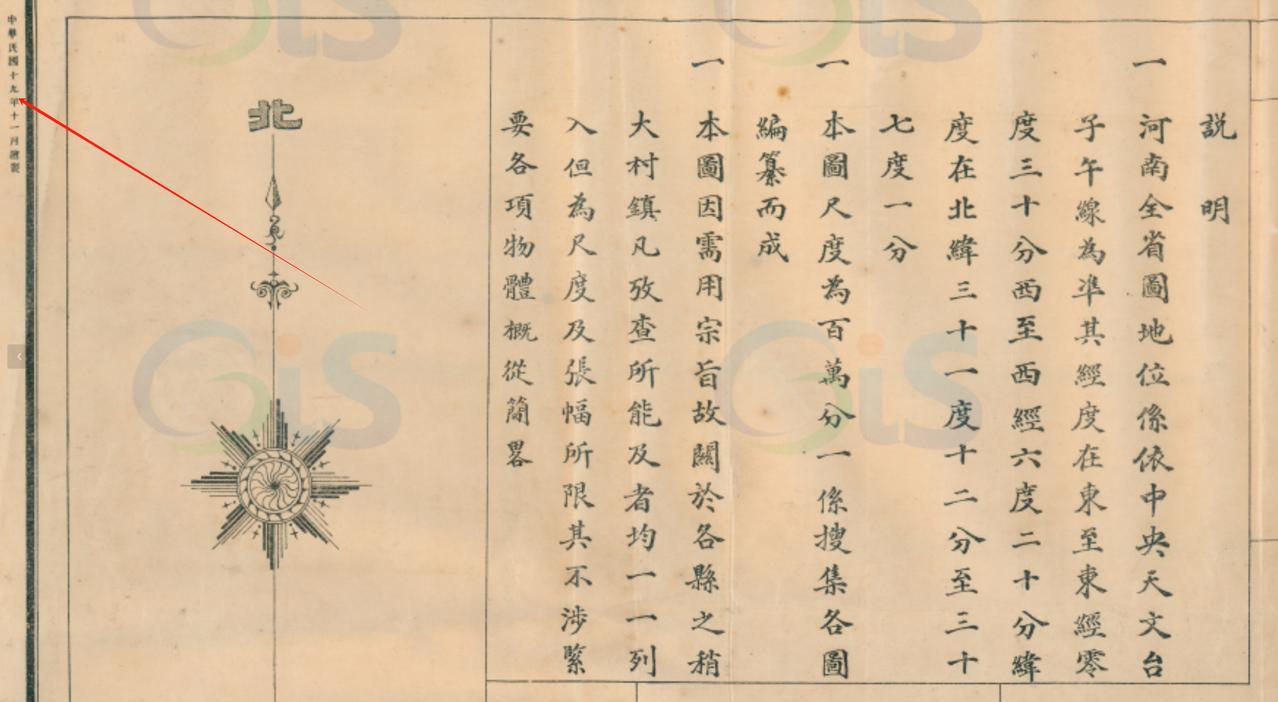 説明
一 河南全省圖地位係依中央天文台
子午線為準其經度在東至東經零
度三十分西至西經六度二十分緯
度在北緯三十一度十二分至三十
七度一分
一 本圖尺度為百萬分一係搜集各圖
編纂而成
一 本圖因需用宗旨故關於各縣之稍
大村鎮凡攷查所能及者均一一列
入但為尺度及張幅所限其不涉緊
要各項物體概從簡畧
北
中華民國十九年十一月繪製
GiS
GiS
GiS
GiS